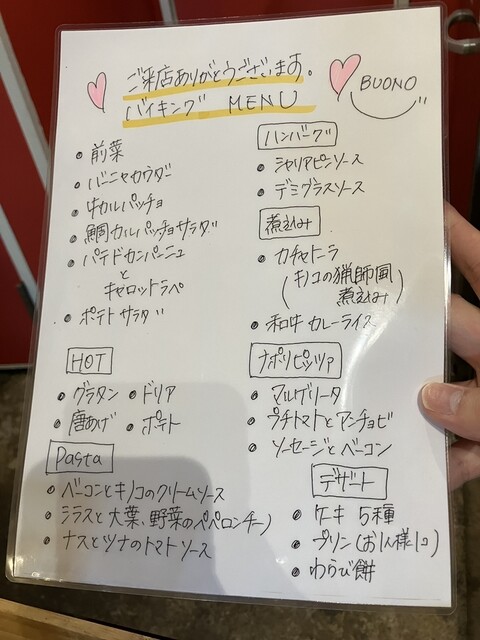 ご来店ありがとうございます。
バイキング MENU
BUONO
・前菜
・バーニャカウダー
・牛カルパッチョ
・鯛カルパッチョサラダ
・パテドカンパーニュ
と
キャロットラペ
・ポテトサラダ
HOT
・グラタン ・ドリア
・唐あげ ・ポテト
Pasta
・ベーコンとキノコのクリームソース
・シラスと大葉、野菜のペペロンチーノ
・ナスとツナのトマトソース
ハンバーグ
・シャリアピンソース
・デミグラスソース
煮込み
・カチャトーラ
(キノコの猟師風
煮込み)
・和牛カレーライス
ナポリピッツァ
・マルゲリータ
・プチトマトとアンチョビ
・ソーセージとベーコン
デザート
・ケーキ 5種
・プリン(お1人様1コ)
・わらび餅